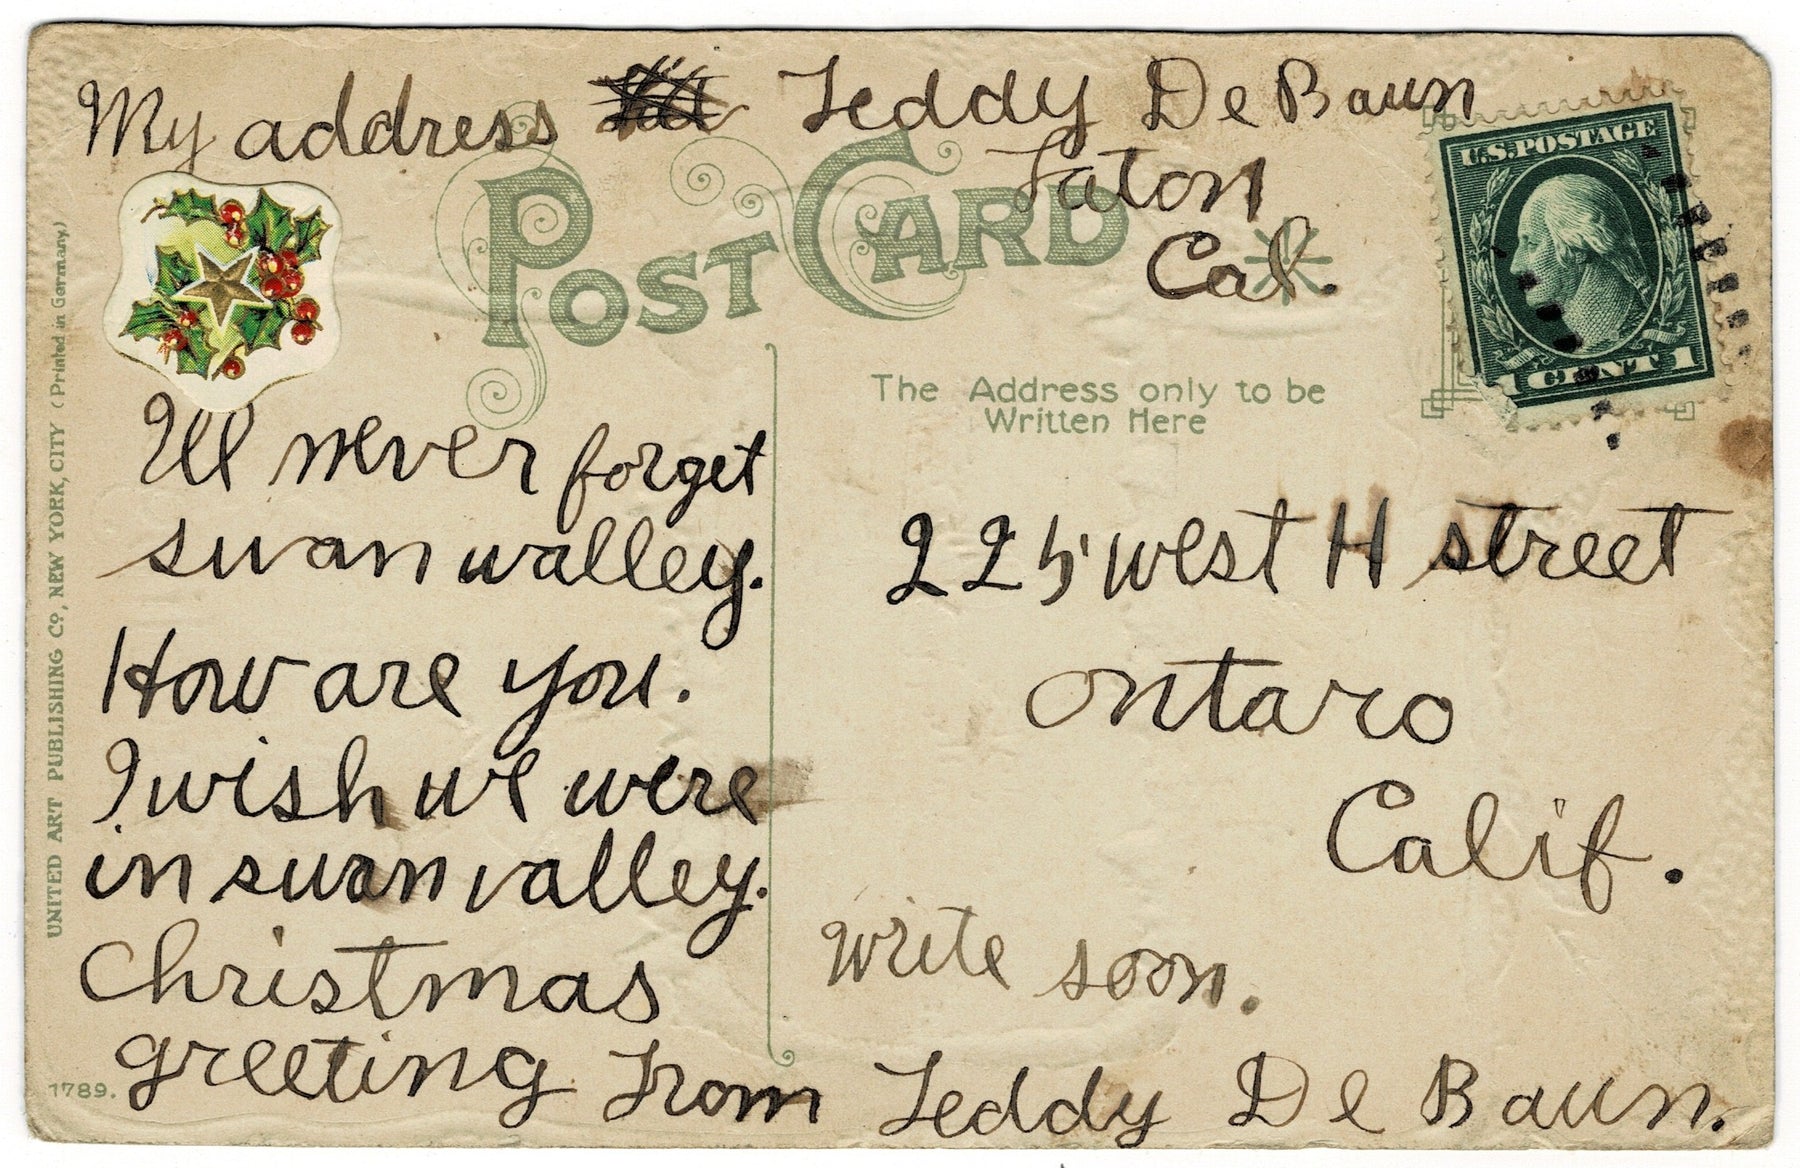 My address Teddy De Baun
Laton
Cal.
POST CARD
U.S. POSTAGE
1 CENT 1
The Address only to be
Written Here
I'll never forget
swan valley.
How are you.
I wish we were
in swan valley.
Christmas
greeting From Teddy De Baun.
225 west H street
ontaro
Calif.
Write soon.
UNITED ART PUBLISHING Co., NEW YORK, CITY (Printed in Germany.)
1789.